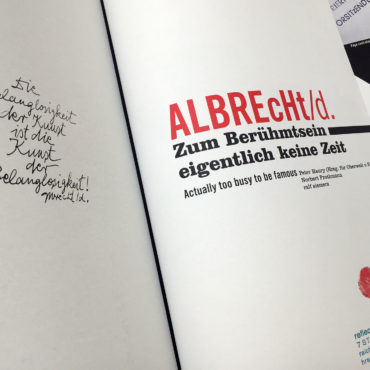 Die
Belanglosigkeit
der Kunst
ist die
Kunst
der
Belanglosigkeit!
ALBREcHt/d.
Zum Berühmtsein
eigentlich keine Zeit
Actually too busy to be famous
Peter Haury (Hrsg. für Oberwelt e.
Norbert Prothmann
ralf siemers
reflec